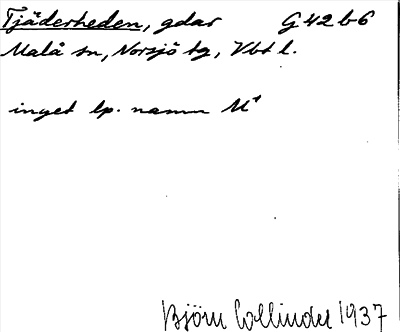 Tjäderheden, gdar G42b6
Malå sn, Norsjö tg, Vbt l.
inget lp. namn M¹
Björn Collinder 1937